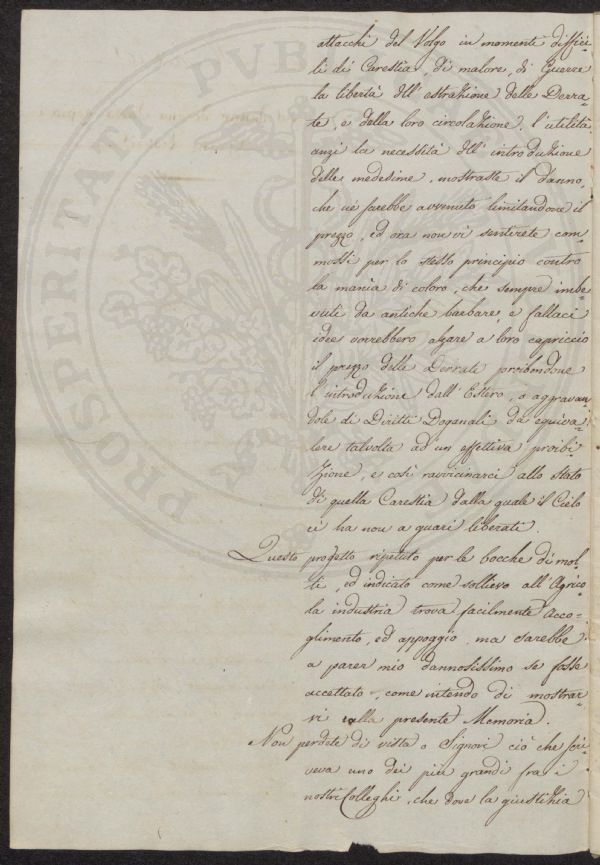 attacchi del Volgo in momenti diffici=
li di Carestia, di malore, di Guerre
la libertà dell' estrazione delle Derra=
te, e della loro circolazione, l'utilità
anzi la necessità dell' introduzione
delle medesime, mostraste il danno,
che ne sarebbe avvenuto limitandone il
prezzo, ed ora non vi sentirete com=
mossi per lo stesso principio contro
la mania di coloro, che sempre imbe=
vuti da antiche barbare, e fallaci
idee vorrebbero alzare a loro capriccio
il prezzo delle Derrate proibendone
l'introduzione dall' Estero, o aggravan=
dole di Diritti Doganali da equiva=
lere talvolta ad un effettiva proibi=
zione, e così ravvicinarci allo stato
di quella Carestia dalla quale il Cielo
ci ha non a guari liberati.
Questo progetto ripetuto per le bocche di mol=
ti, ed indicato come sollievo all' Agrico=
la industria trova facilmente acco=
glimento, ed appoggio, ma sarebbe
a parer mio dannosissimo se fosse
accettato, come intendo di mostrar=
vi nella presente Memoria.
Non perdete di vista o Signori ciò che scri=
veva uno dei più grandi fra i
nostri Colleghi, che dove la giustizia
PROSPERITATI PUB